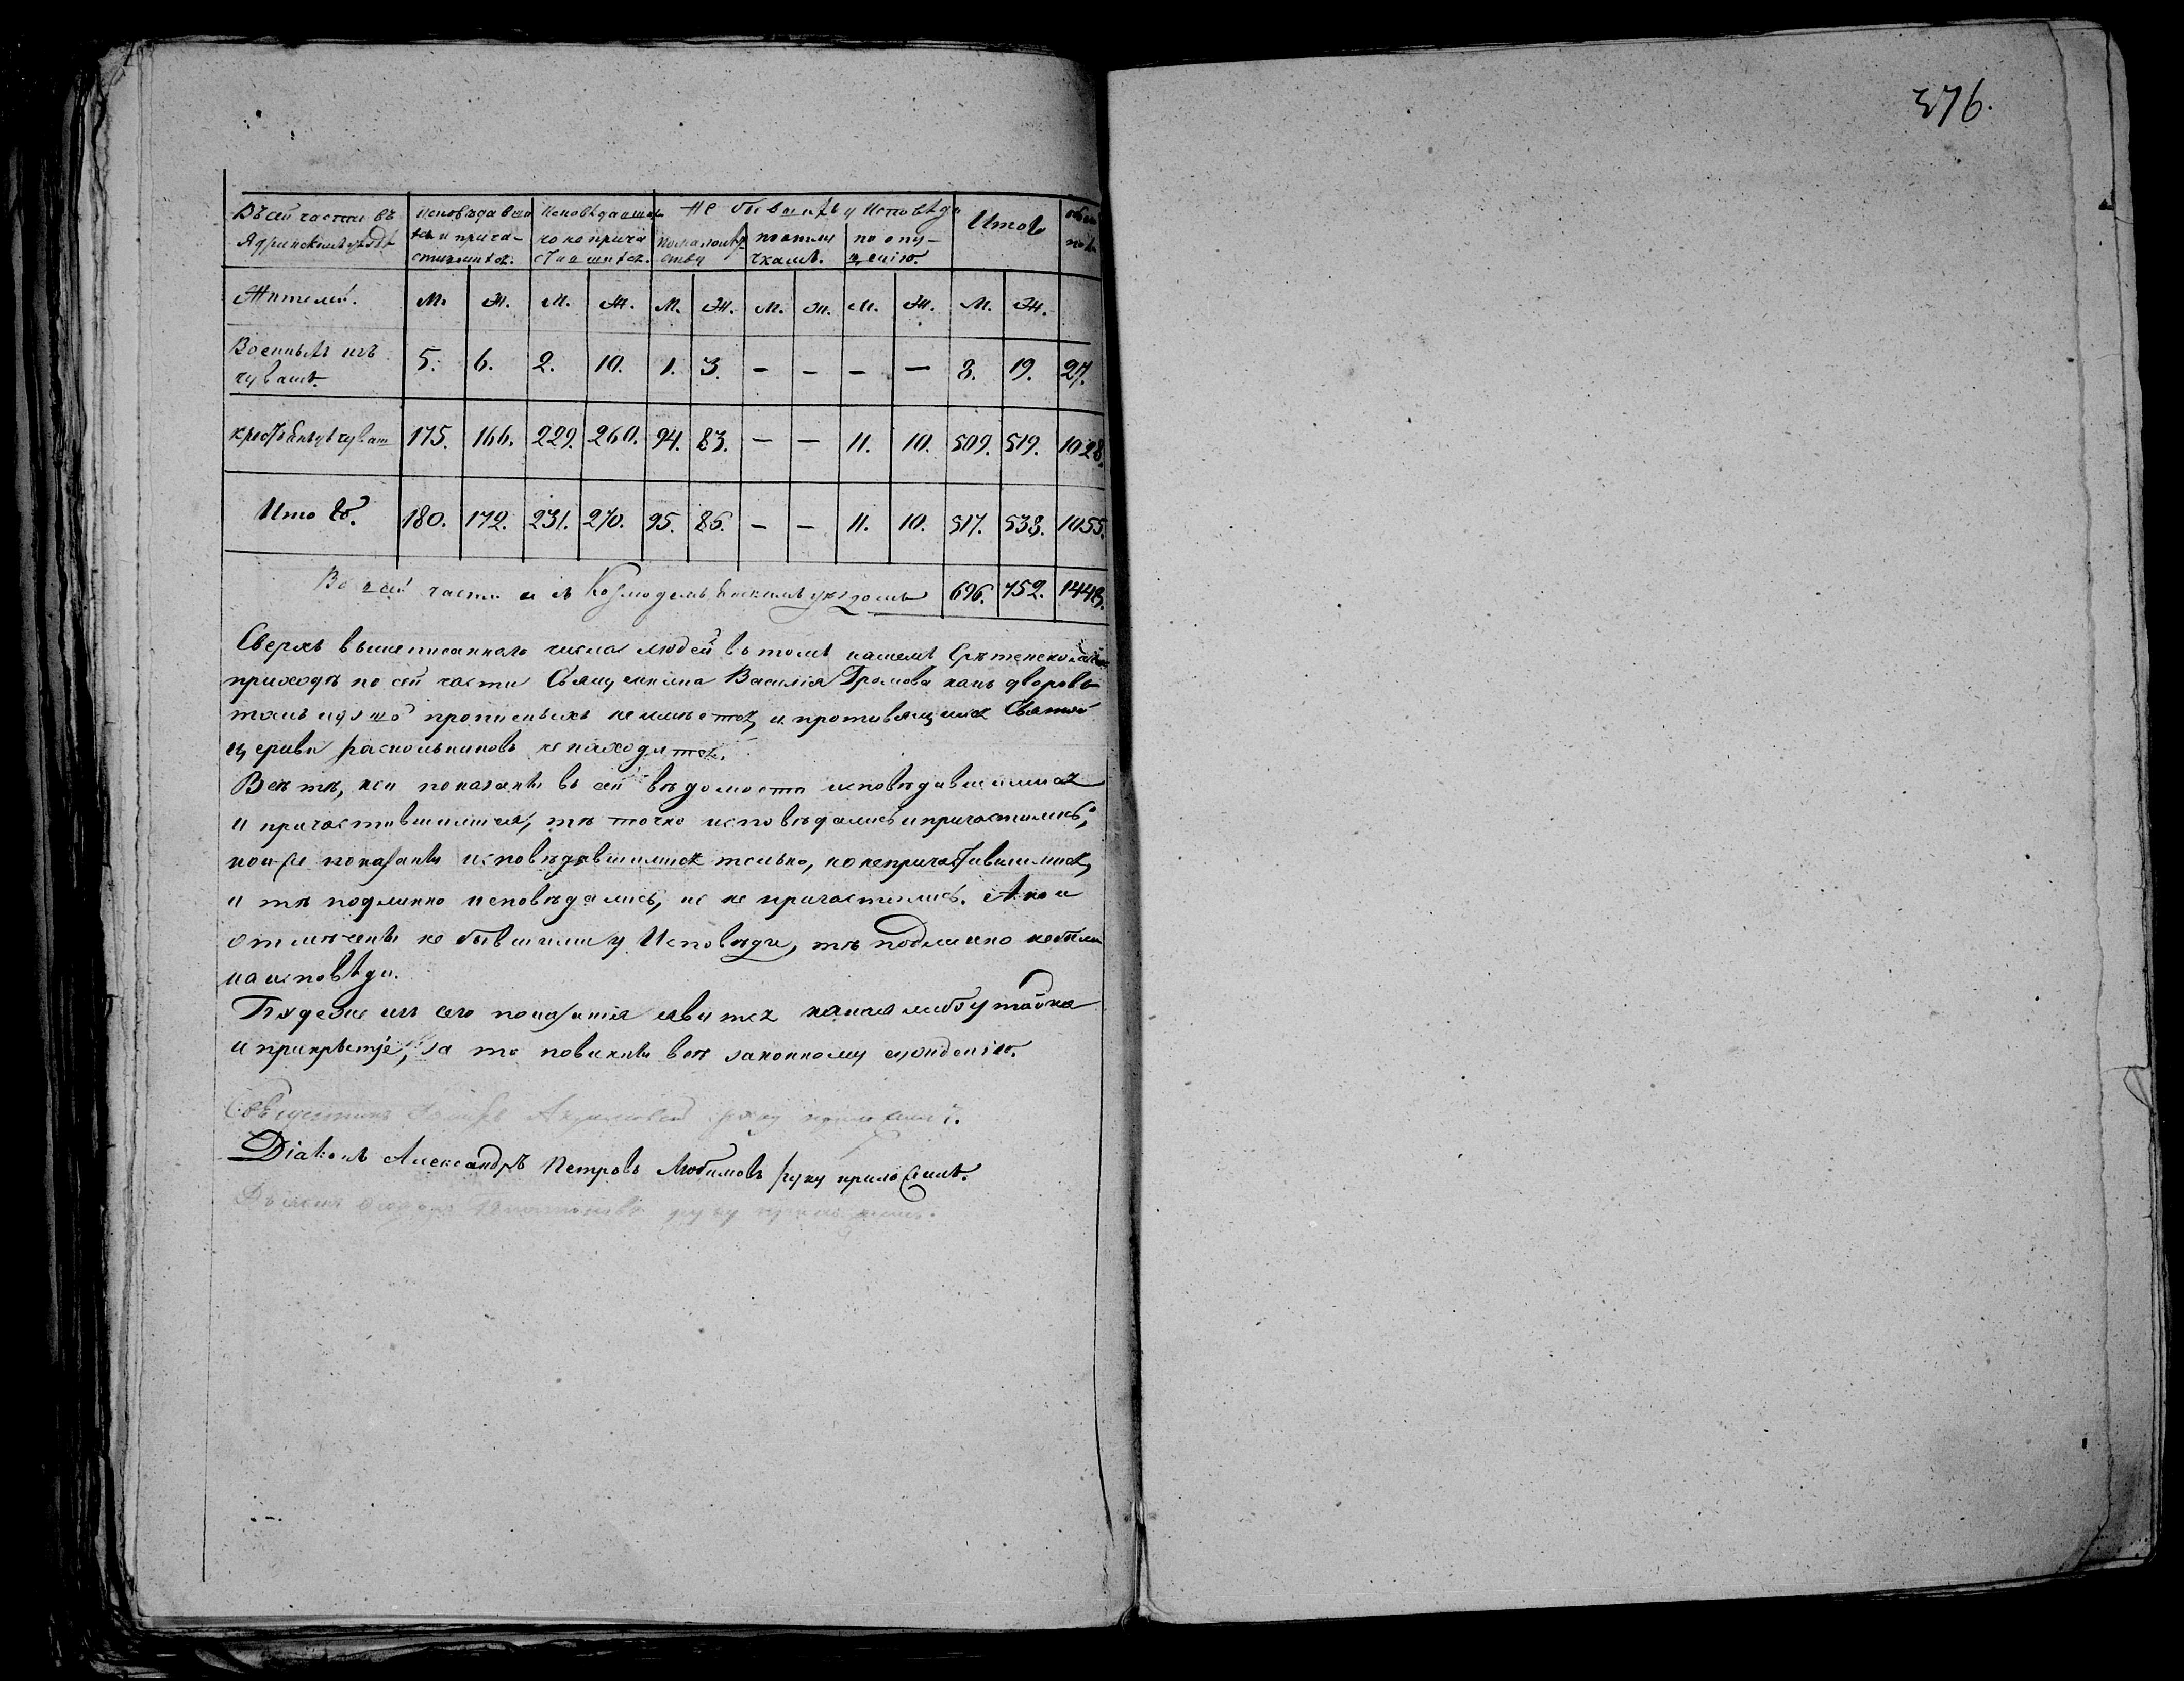 376.
Въ сей части въ Ядринскомъ уѣздѣ | Исповѣдавшихся и причастившихся. | Исповѣдавшихся но не причастившихся. | Не бывшихъ у Исповѣди | Итого | обоего пола
по малолѣтству | по отлучкамъ. | по опущенію.
Жителей. | М. | Ж. | М. | Ж. | М. | Ж. | М. | Ж. | М. | Ж. | М. | Ж.
Военныхъ изъ чувашъ. | 5. | 6. | 2. | 10. | 1. | 3. | — | — | — | — | 8. | 19. | 27.
крестьянъ изъ чуваш | 175. | 166. | 229. | 260. | 94. | 83. | — | — | 11. | 10. | 509. | 519. | 1028.
Итого. | 180. | 172. | 231. | 270. | 95. | 86. | — | — | 11. | 10. | 517. | 538. | 1055.
Во всей части и съ Козмодемьянскимъ уѣздомъ | 696. | 752. | 1448.
Сверхъ вышеписаннаго числа людей въ томъ нашемъ Срѣтенскомъ
приходѣ по сей части Священника Василія Громова какъ дворовъ
такъ и душъ прописныхъ не имѣется, и противящихся Святой
церкви раскольниковъ не находится.
Всѣ тѣ, кои показаны въ сей вѣдомости исповѣдавшимися
и причастившимися, тѣ точно исповѣдались и причастились;
кои же показаны исповѣдавшимися только, но непричастившимися,
и тѣ подлинно исповѣдались, но не причастились. А кои
отмѣчены не бывшими у Исповѣди, тѣ подлинно небыли
на исповѣди.
Буде же изъ сего показанія явится какая либо утайка
и прикрытіе, за то повинны всѣ законному сужденію.
руку приложилъ.
Діаконъ Александръ Петровъ Любимовъ руку приложилъ.
руку приложилъ.